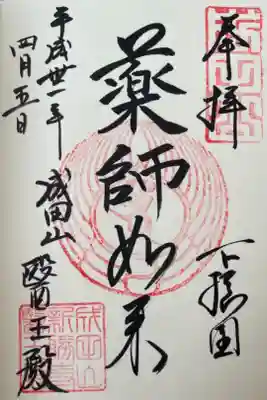 奉拝
下総国
薬師如来
成田山
醫王殿
平成丗一年
四月五日
成田山
新勝寺